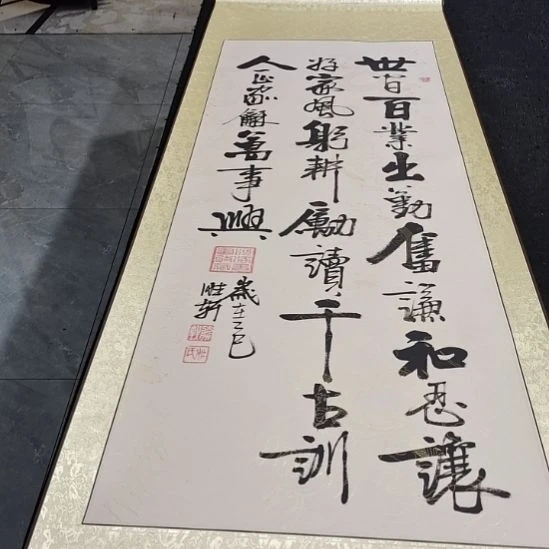 世有百業出勤奮謙和忍讓
好家風躬耕勵讀千古訓
人正家和萬事興
歲在乙巳
胜轩